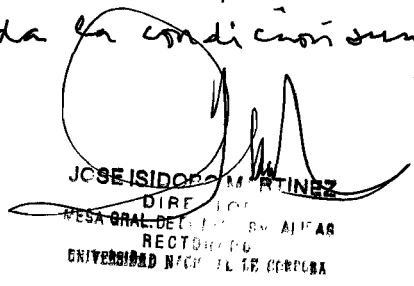 la condición
JOSE ISIDORO MARTINEZ
DIRECTOR
MESA GRAL. DE
RECTORADO
UNIVERSIDAD NACIONAL DE CORDOBA